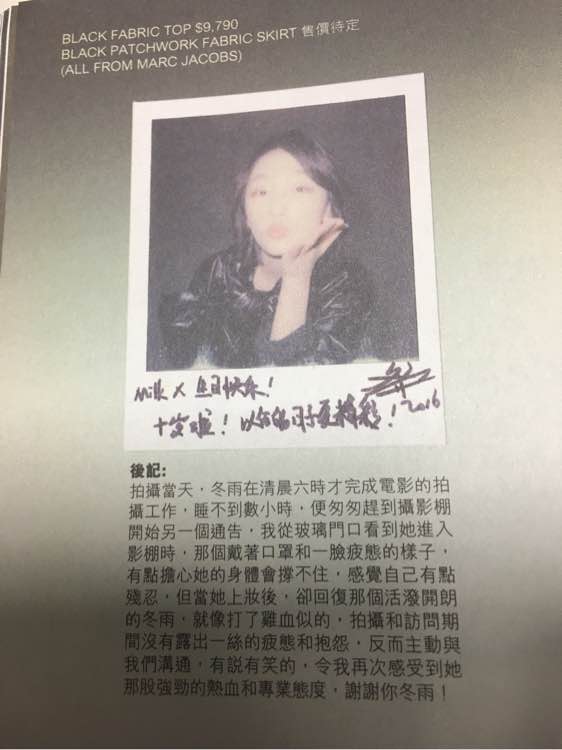 BLACK FABRIC TOP $9,790
BLACK PATCHWORK FABRIC SKIRT 售價待定
(ALL FROM MARC JACOBS)
Milk X 生日快乐!
十岁啦! 以后的日子更精彩!
2016
後記:
拍攝當天，冬雨在清晨六時才完成電影的拍
攝工作，睡不到數小時，便匆匆趕到攝影棚
開始另一個通告，我從玻璃門口看到她進入
影棚時，那個戴著口罩和一臉疲態的樣子，
有點擔心她的身體會撐不住，感覺自己有點
殘忍，但當她上妝後，卻回復那個活潑開朗
的冬雨，就像打了雞血似的，拍攝和訪問期
間沒有露出一絲的疲態和抱怨，反而主動與
我們溝通，有説有笑的，令我再次感受到她
那股強勁的熱血和專業態度，謝謝你冬雨！